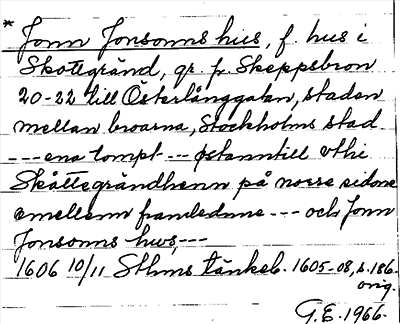 * Jonn Jonsonns hus, f. hus i
Skottgränd, gr. fr. Skeppsbron
20-22 till Österlånggatan, staden
mellan broarna, Stockholms stad
---ena tompt --- østanntill vthi
Skåttegrändhenn på norre sidone
emellem framledne --- och Jonn
Jonsonns hws,---
1606 10/11 Sthms tänkeb. 1605-08, s. 186.
orig.
G.E. 1966.